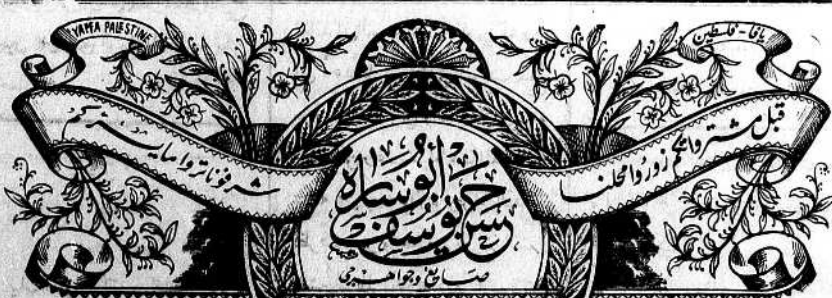 YAFFA PALESTINE
يافا - فلسطين
قبل مشترواتكم زوروا محلنا
شرفونا تروا ما يسركم
حسن يوسف أبو ساره
صايغ وجواهرجى